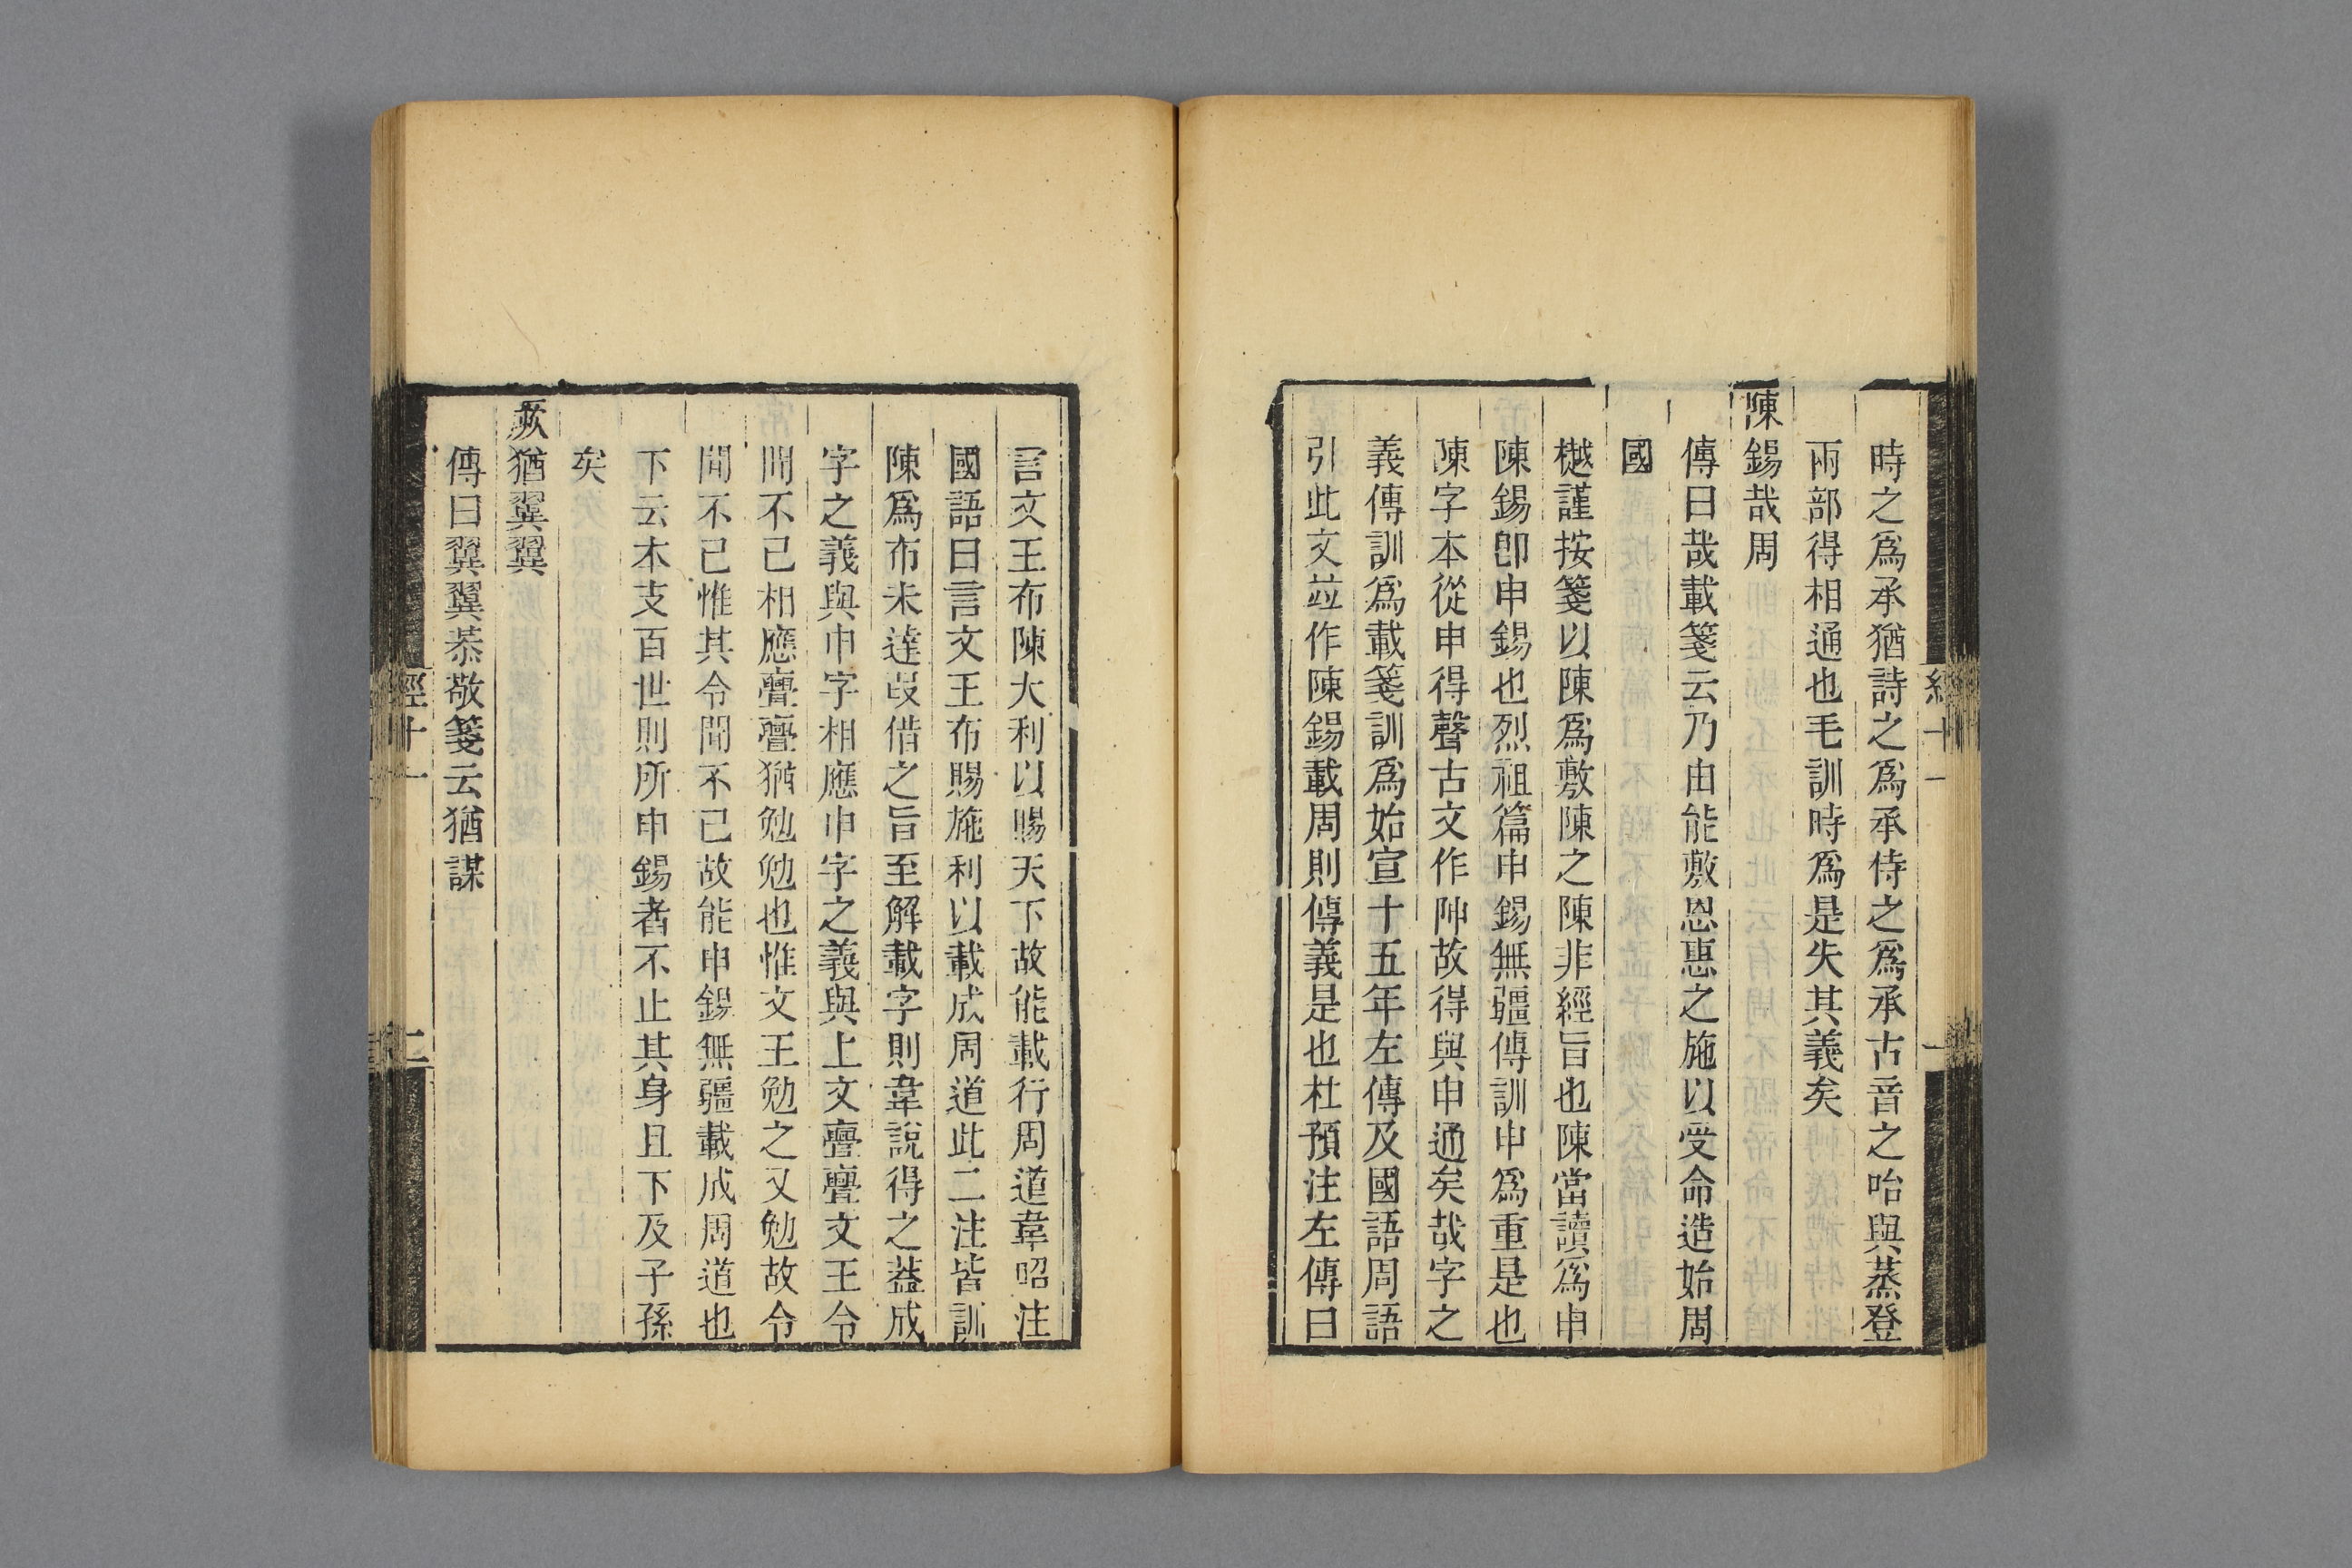 時之爲承猶詩之爲承侍之爲承古音之咍與蒸登
兩部得相通也毛訓時爲是失其義矣
陳錫哉周
傳曰哉載箋云乃由能敷恩惠之施以受命造始周
國
樾謹按箋以陳爲敷陳之陳非經旨也陳當讀爲申
陳錫卽申錫也烈祖篇申錫無疆傳訓申爲重是也
陳字本從申得聲古文作陣故得與申通矣哉字之
義傳訓爲載箋訓爲始宣十五年左傳及國語周語
引此文竝作陳錫載周則傳義是也杜預注左傳曰
言文王布陳大利以賜天下故能載行周道韋昭注
國語曰言文王布賜施利以載成周道此二注皆訓
陳爲布未達叚借之旨至解載字則韋說得之蓋成
字之義與申字相應申字之義與上文亹亹文王令
聞不已相應亹亹猶勉勉也惟文王勉之又勉故令
聞不已惟其令聞不已故能申錫無疆載成周道也
下云本支百世則所申錫者不止其身且下及子孫
矣
厥猶翼翼
傳曰翼翼恭敬箋云猶謀
經十一
一
經十一
二